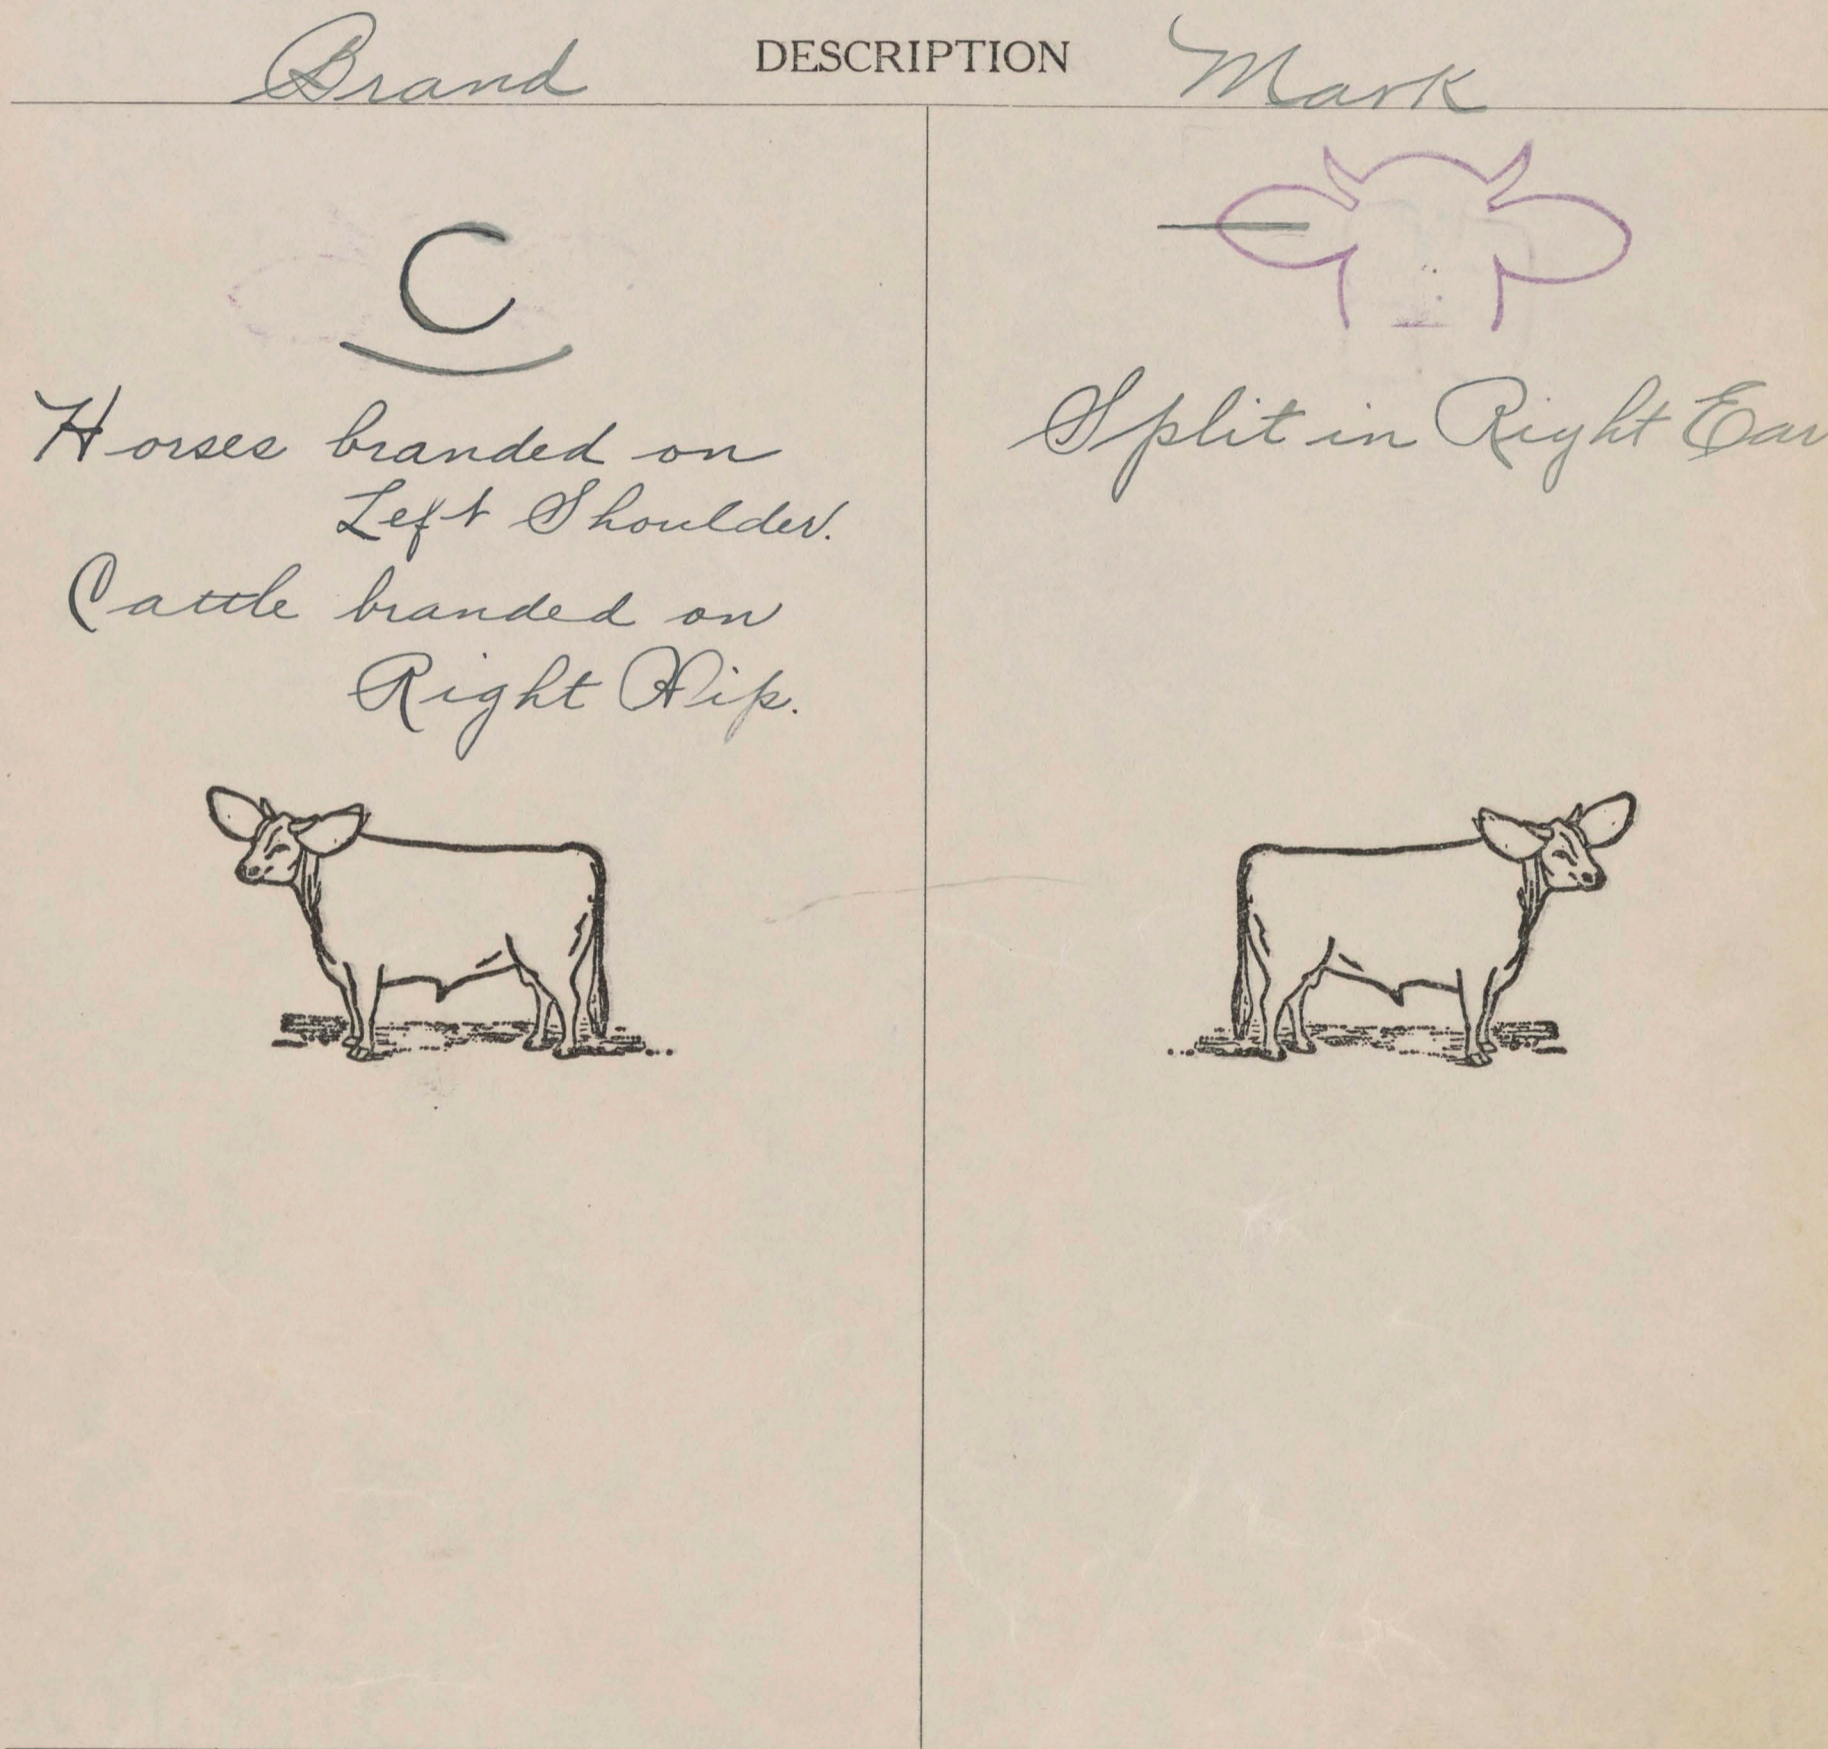 Brand DESCRIPTION Mark
C
Horses branded on
Left Shoulder.
Cattle branded on
Right Hip.
Split in Right Ear